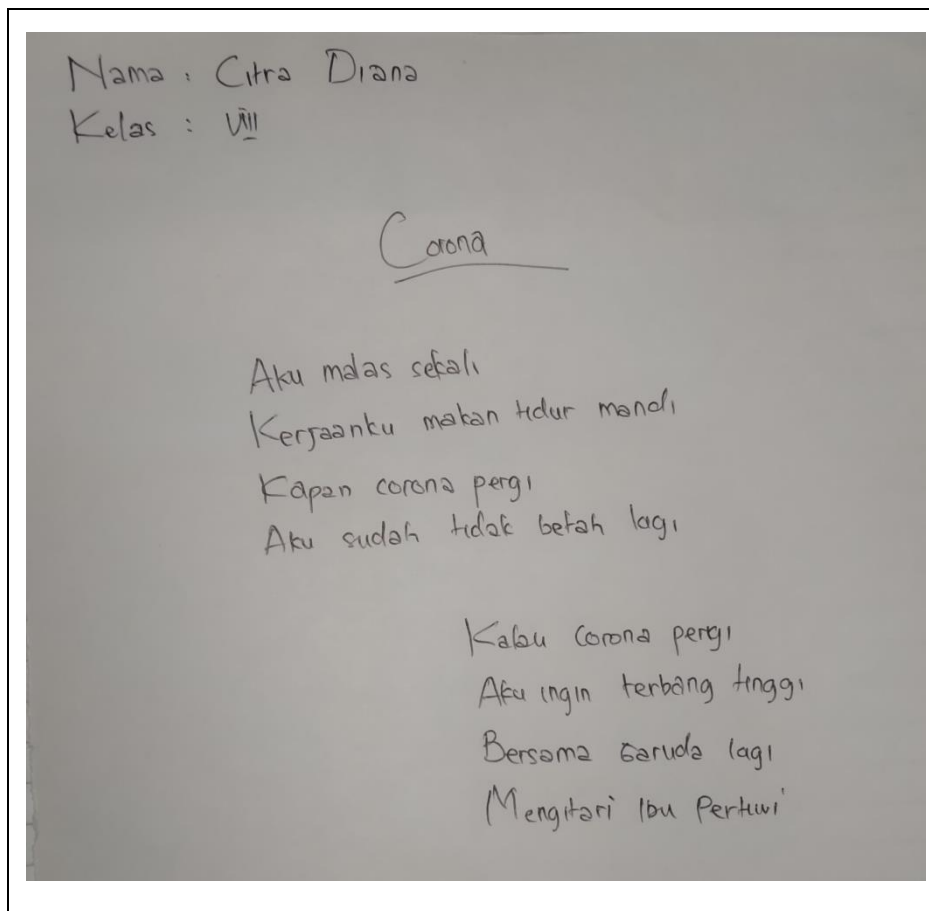 Nama : Citra Diana
Kelas : VIII
Corona
Aku malas sekali
Kerjaanku makan tidur mandi
Kapan corona pergi
Aku sudah tidak betah lagi
Kalau Corona pergi
Aku ingin terbang tinggi
Bersama Garuda lagi
Mengitari Ibu Pertiwi